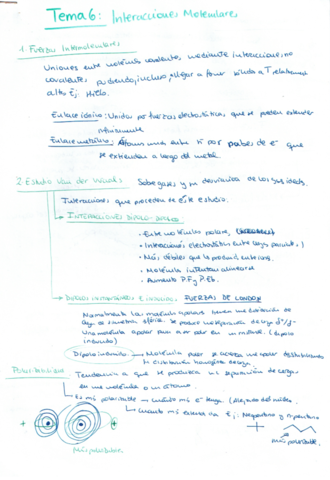 Tema 6: Interacciones Moleculares
1. Fuerzas Intermoleculares
Uniones entre moléculas covalentes, mediante interacciones no
covalentes pudiendo, incluso, llegar a formar sólidos a T relativamente
altas Ej: Hielo.
Enlace iónico: Unidas por fuerzas electrostáticas, que se pueden extender
Enlace metálico: Átomos unidos entre sí por nubes de e⁻ que
se extienden a largo del metal.
2. Estudio Van der Waals: Sobre gases y su desviación de los gases ideales.
Interacciones que proceden de este estudio.
INTERACCIONES DIPOLO-DIPOLO
· Entre moléculas polares
· Interacciones electrostáticas entre cargas parciales
· Más débiles que
· Moléculas
· Aumento P.F y P.Eb.
DIPOLOS INSTANTÁNEOS E INDUCIDOS. FUERZAS DE LONDON
Normalmente las moléculas apolares tienen una distribución de
carga de simetría esférica. Se produce una separación de carga δ⁺/δ⁻
Una molécula apolar pasa a ser polar en un instante. (dipolo
Dipolo inducido → Molécula se acerca a una apolar
la distribución homogénea de carga.
Polarizabilidad
Tendencia a que se produzca una separación de cargas
en una molécula o un átomo.
Es más polarizable → cuánto más e⁻ tenga (alejados del núcleo.
cuánto más extensa sea Ej: Neopentano y n-pentano
más polarizable
más polarizable.